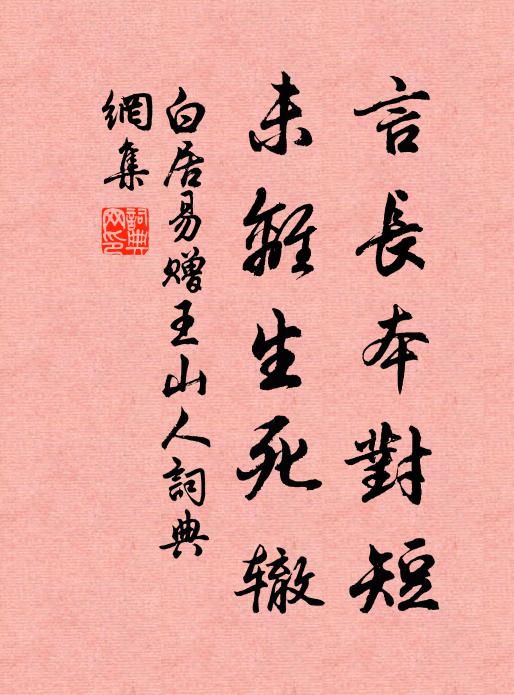 言長本對短
未離生死辙
白居易赠王山人詞典
網集
詞典
网印